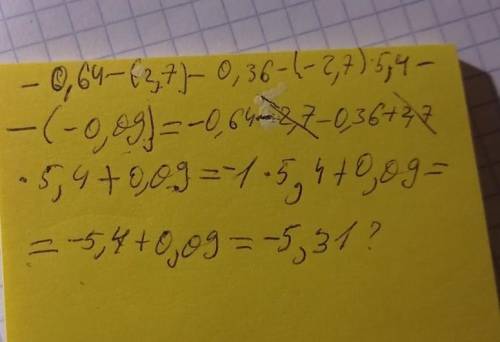 - 0,64 - (2,7) - 0,36 - (-2,7) · 5,4 -
- (-0,09) = -0,64 - 2,7 - 0,36 + 2,7
· 5,4 + 0,09 = -1 · 5,4 + 0,09 =
= -5,4 + 0,09 = -5,31?